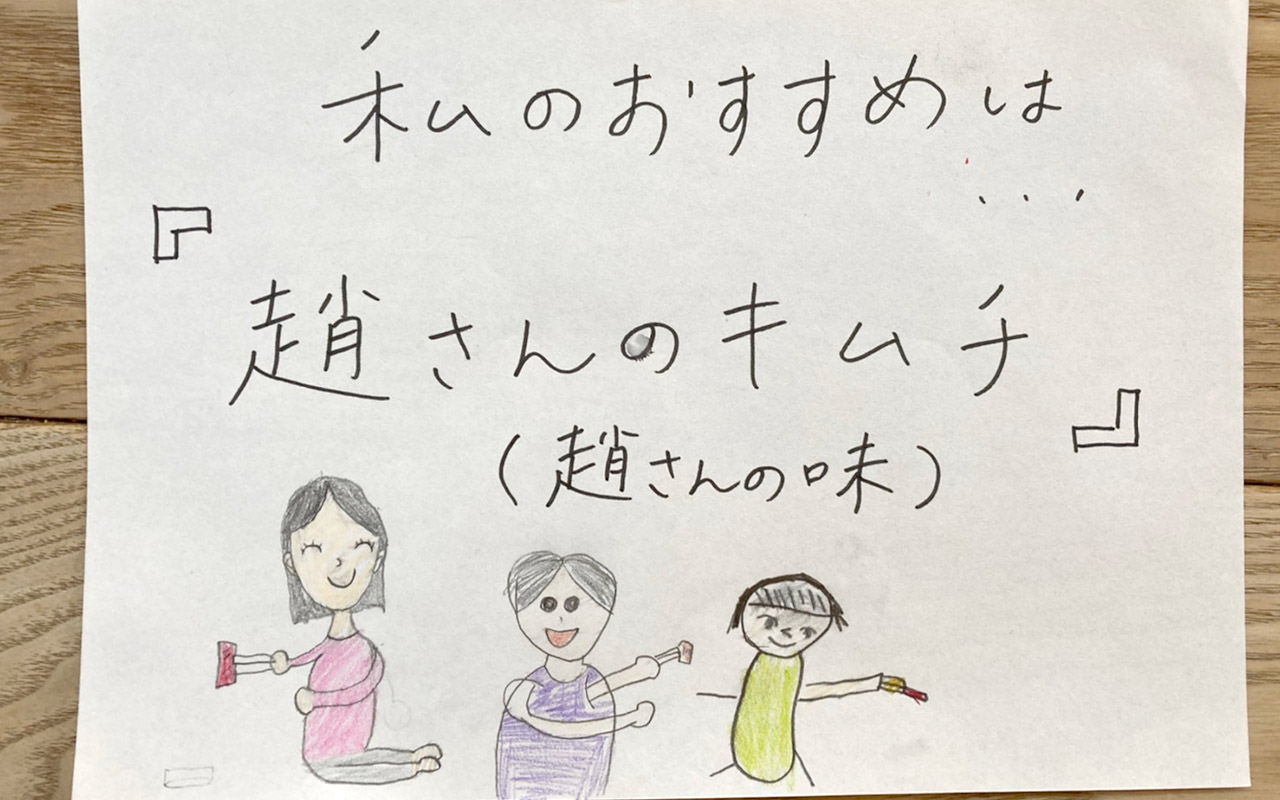 私のおすすめは
...
『
趙さんのキムチ
』
(趙さんの味)